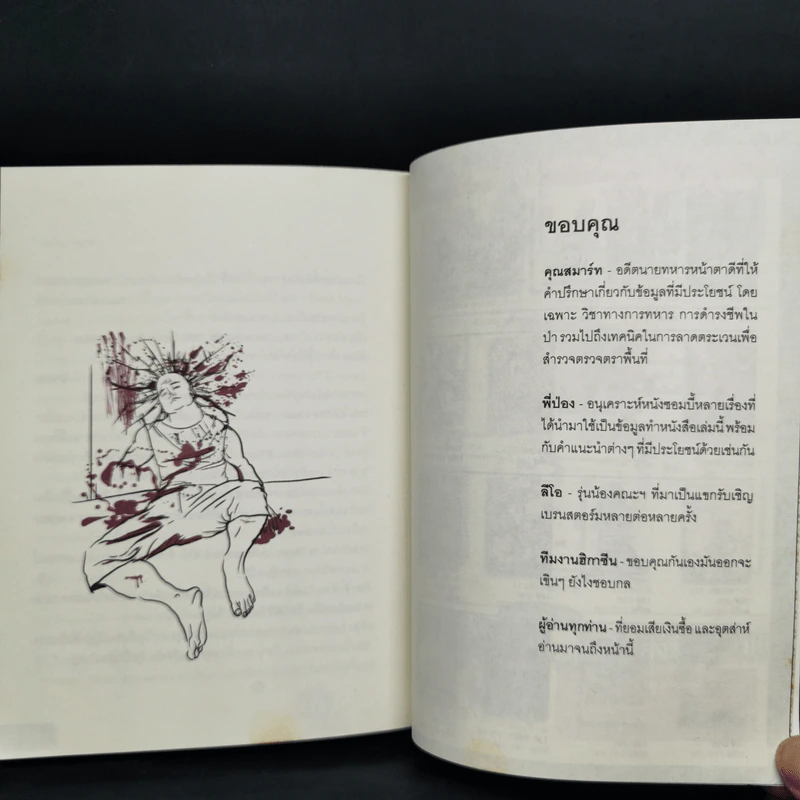 ขอบคุณ
คุณสมาร์ท - อดีตนายทหารหน้าตาดีที่ให้
คำปรึกษาเกี่ยวกับข้อมูลที่มีประโยชน์ โดย
เฉพาะ วิชาทางการทหาร การดำรงชีพใน
ป่า รวมไปถึงเทคนิคในการลาดตระเวนเพื่อ
สำรวจตรวจตราพื้นที่
พี่ป่อง - อนุเคราะห์หนังซอมบี้หลายเรื่องที่
ได้นำมาใช้เป็นข้อมูลทำหนังสือเล่มนี้ พร้อม
กับคำแนะนำต่างๆ ที่มีประโยชน์ด้วยเช่นกัน
ลีโอ - รุ่นน้องคณะฯ ที่มาเป็นแขกรับเชิญ
เบรนสตอร์มหลายต่อหลายครั้ง
ทีมงานฮิกาซีน - ขอบคุณกันเองมันออกจะ
เขินๆ ยังไงชอบกล
ผู้อ่านทุกท่าน - ที่ยอมเสียเงินซื้อ และอุตส่าห์
อ่านมาจนถึงหน้านี้